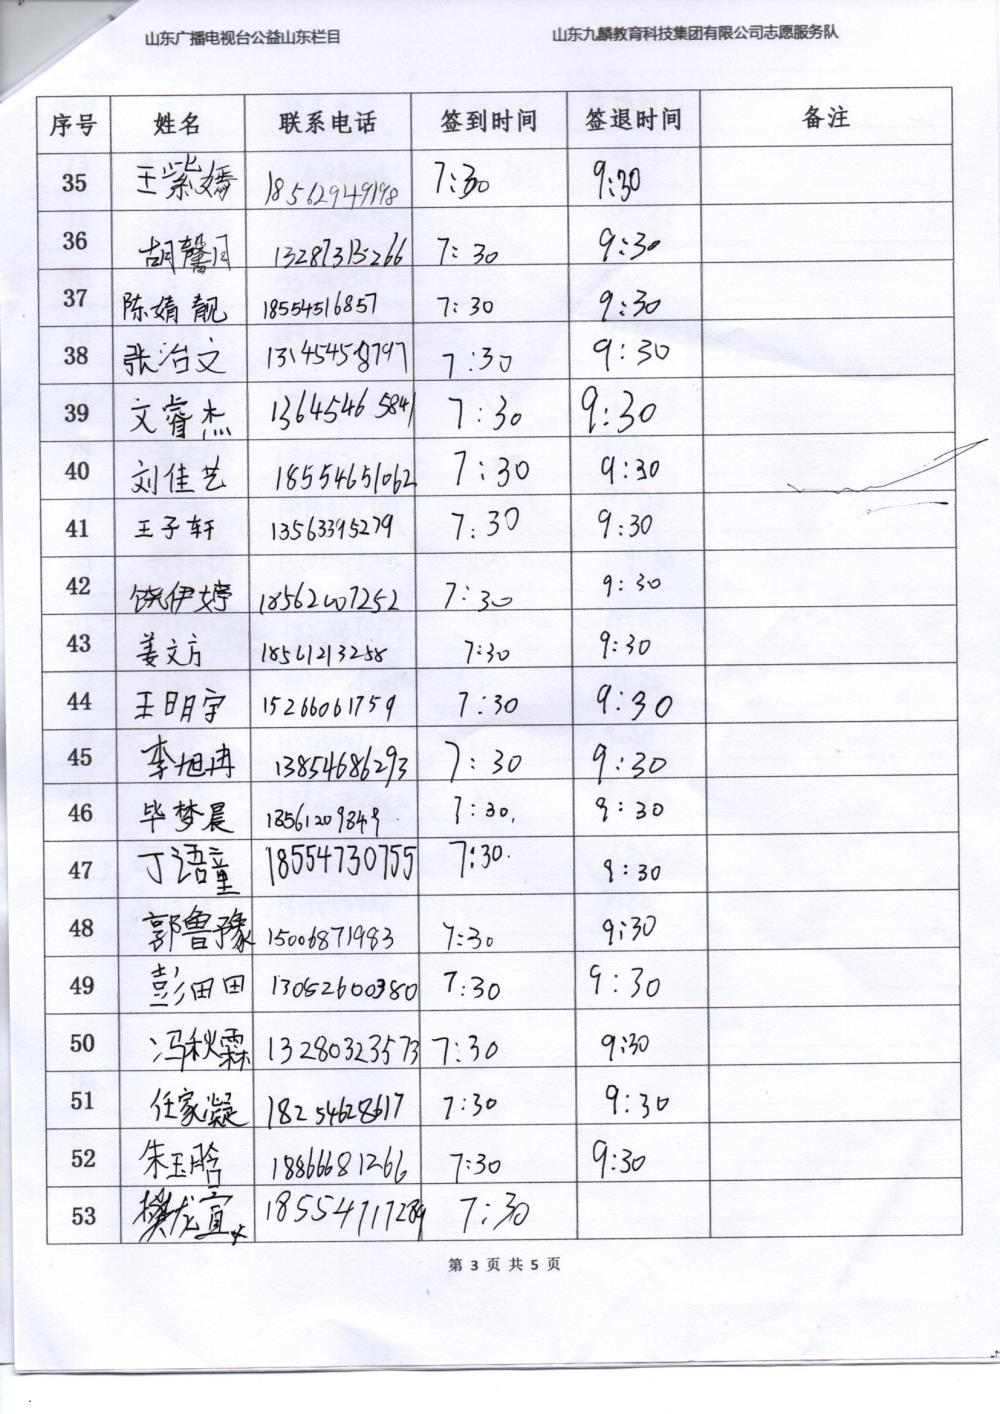 山东广播电视台公益山东栏目 山东九麟教育科技集团有限公司志愿服务队
序号 姓名 联系电话 签到时间 签退时间 备注
35 王紫嫣 18562949198 7:30 9:30
36 胡馨月 7:30 9:30
37 陈婧靓 18554516857 7:30 9:30
38 张治文 7:30 9:30
39 文睿杰 13645465841 7:30 9:30
40 刘佳艺 18554651062 7:30 9:30
41 王子轩 13563395279 7:30 9:30
42 饶伊婷 18562007252 7:30 9:30
43 姜文方 18561213258 7:30 9:30
44 王明宇 15266061759 7:30 9:30
45 李旭冉 13854686293 7:30 9:30
46 毕梦晨 7:30. 9:30
47 丁语童 18554730755 7:30. 9:30
48 郭鲁豫 15006871983 7:30 9:30
49 彭田田 13052600380 7:30 9:30
50 冯秋霖 13280323573 7:30 9:30
51 任家凝 18254628617 7:30 9:30
52 朱玉晗 18866681266 7:30 9:30
53 樊龙宜 18554717289 7:30
第 3 页 共 5 页